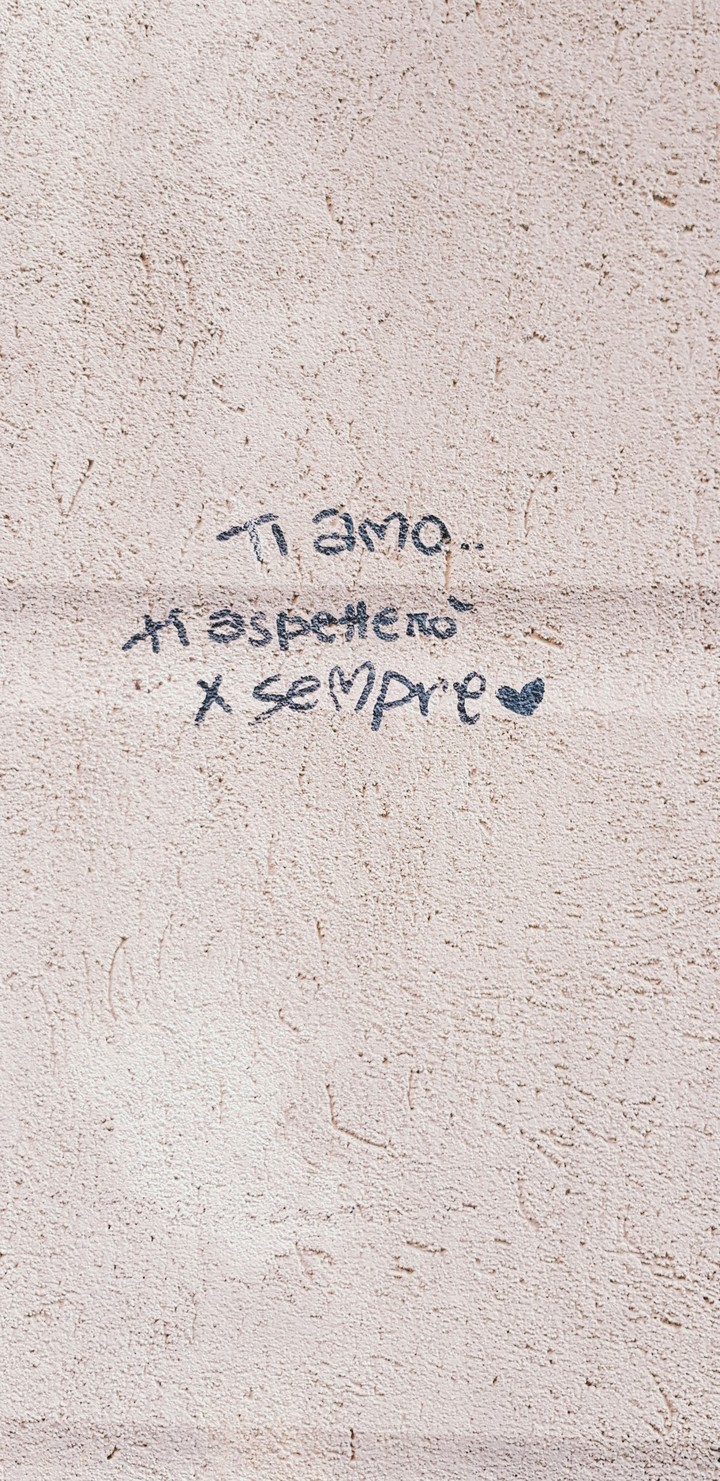 Ti amo..
ti aspetterò
x sempre♥